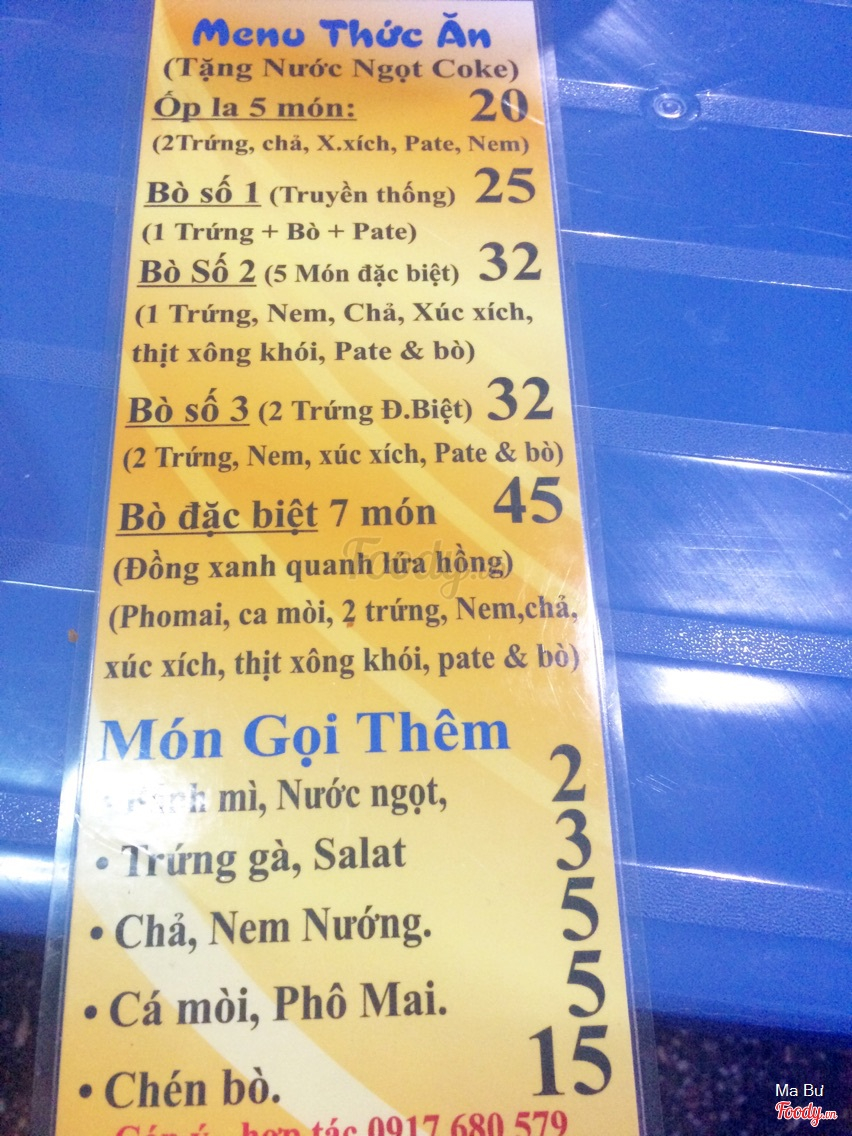 Menu Thức Ăn
(Tặng Nước Ngọt Coke)
Ốp la 5 món: 20
(2Trứng, chả, X.xích, Pate, Nem)
Bò số 1 (Truyền thống) 25
(1 Trứng + Bò + Pate)
Bò Số 2 (5 Món đặc biệt) 32
(1 Trứng, Nem, Chả, Xúc xích,
thịt xông khói, Pate & bò)
Bò số 3 (2 Trứng Đ.Biệt) 32
(2 Trứng, Nem, xúc xích, Pate & bò)
Bò đặc biệt 7 món 45
(Đồng xanh quanh lửa hồng)
Foody.vn
(Phomai, ca mòi, 2 trứng, Nem,chả,
xúc xích, thịt xông khói, pate & bò)
Món Gọi Thêm
Bánh mì, Nước ngọt, 2
• Trứng gà, Salat 3
• Chả, Nem Nướng. 5
• Cá mòi, Phô Mai. 5
• Chén bò. 15
hợp tác 0917 680 579
Ma Bư
Foody.vn